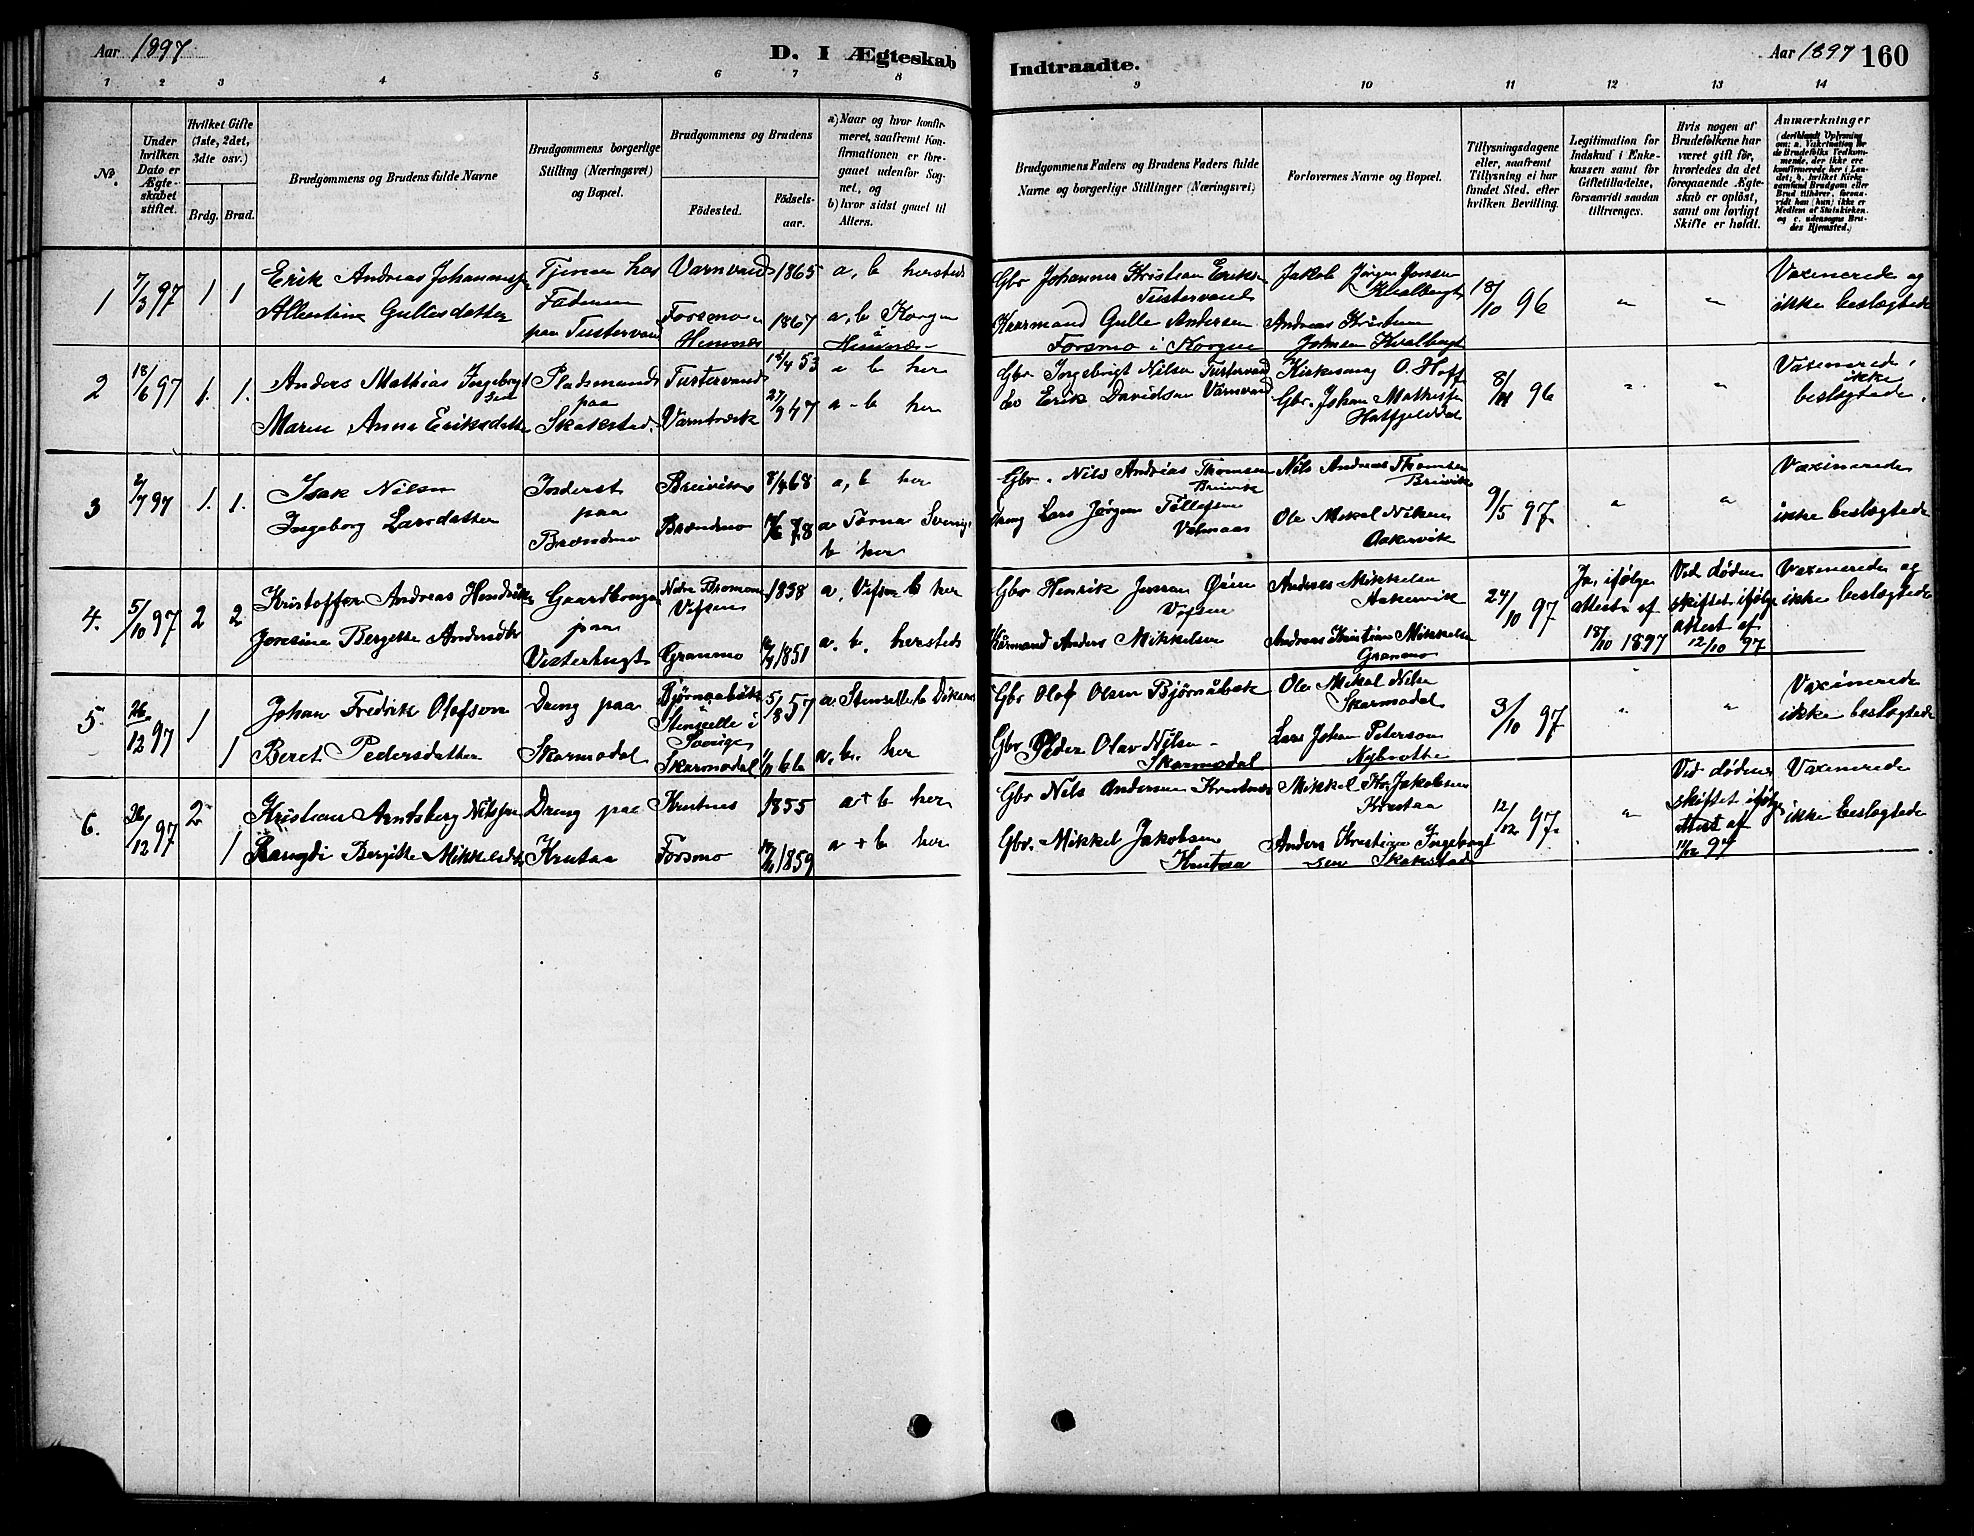 Aar 1897
D. I Ægteskab
Indtraadte.
Aar 1897 160
1 2 3 4 5 6 7 8 9 10 11 12 13 14
No.
Under hvilken Dato er Ægteskabet stiftet.
Hvilket Gifte (1ste, 2det, 3die osv.)
Brdg. Brud.
Brudgommens og Brudens fulde Navne
Brudgommens borgerlige Stilling (Næringsvei) og Bopæl.
Brudgommens og Brudens
Fødested.
Fødselsaar.
a) Naar og hvor konfirmeret, saafremt Konfirmationen er foregaaet udenfor Sognet, og
b) hvor sidst gaaet til Alters.
Brudgommens Faders og Brudens Faders fulde Navne og borgerlige Stillinger (Næringsvei)
Forlovernes Navne og Bopæl.
Tillysningsdagene eller, saafremt Tillysning ei har fundet Sted, efter hvilken Bevilling.
Legitimation for Indskud i Enkekassen samt for Giftetilladelse, forsaavidt saadan tiltrænges.
Hvis nogen af Brudefolkene har været gift før, hvorledes da det foregaaende Ægteskab er opløst, samt om lovligt Skifte er holdt.
Anmærkninger
1
7/3 97
1 1
Erik Andreas Johannes
Albertine Gullesdatter
Tjener hos
Faderen
paa Tustervand
Varnvand
Forsmo
Hemnæs
1865
1867
a, b hersteds
a, b Korgen
Hemnæs
Gbr Johannes Kristian Eriksen
Tustervand
Kaarmand Gulle Andersen
Forsmo i Korgen
Jakob Jørgen Jensen
Kvalbergt
Andreas Kristian
Johnsen Kvalbergt
18/10 96
" "
Vaxinerede og
ikke beslægtede
2
18/6 97
1. 1.
Anders Mathias Ingebrigt
sen
Maren Anna Eriksdatter
Pladsmand
paa
Skaksted.
Tustervand
Varntræsk
53
27/9 47
a b her
a - b her
Gbr Ingebrigt Nilsen Tustervand
Erik Davidsen Varnvand
Kirkesang O. Hoff
Gbr. Johan Mathisen
Hatfjelddal
8/11 96
" "
Vaxinerede,
ikke
beslægtede.
3
2/7 97
1. 1.
Isak Nilsen
Ingeborg Larsdatter
Inderst
paa
Brændmo
Breivik
Brændmo
68
78
a, b her
a Tærna Sverige
b her
Gbr. Nils Andreas Thomsen
Breivik
Lars Jørgen Tollefsen
Nils Andreas Thomsen
Breivik
Ole Mikal Nilsen
Aakervik
9/5 97.
" "
Vaxinerede
ikke beslægtede
4.
5/10 97
2 2
Kristoffer Andreas Hendriksen
Joresina Bergette Andersdtr
Gaardbruger
paa
Nedre
Vefsen
Granmo
1838
1851
a. Vefsen b her
a. b. hersteds
Gbr Henrik Jensen Øien
Vefsen
Kårmand Anders Mikkelsen
Anders Mikkelsen
Aakervik
Andreas Kristian Mikkelsen
Granmo
24/10 97
Ja, ifølge
attest af
18/10 1897
Ved døden
skiftet ifølge
attest af
12/10 97
Vaxinerede og
ikke beslægtede
5.
26/12 97
1
1
Johan Fredrik Olofson
Beret Pedersdatter
Dreng paa
Skarmodal
Stensele i
Sverige
Skarmodal
5/8 57
66
a. Stensele b
a. b. her
Gbr Olof Olsen
Gbr Peder Olav Nilsen
Skarmodal
Ole Mikal Nilsen
Skarmodal
Lars Johan Peterson
3/10 97
" "
Vaxinerede
ikke beslægtede
6.
26/12 97
2
1
Kristian Arntsberg Nilssen
Rangdi Bergitte Mikkelsdtr
Dreng paa
Krutaa
Krutnes
Forsmo
1855
1859
a + b her
a + b her
Gbr Nils Andersen Krutnes
Gbr. Mikkel Jakobsen
Krutaa
Mikkel Jakobsen
Krutaa
Anders Kristian Ingebrigt
sen Skaksted
12/12 97.
"
Ved døden
skiftet ifølge
attest af
11/12 97
Vaxinerede
ikke beslægtede